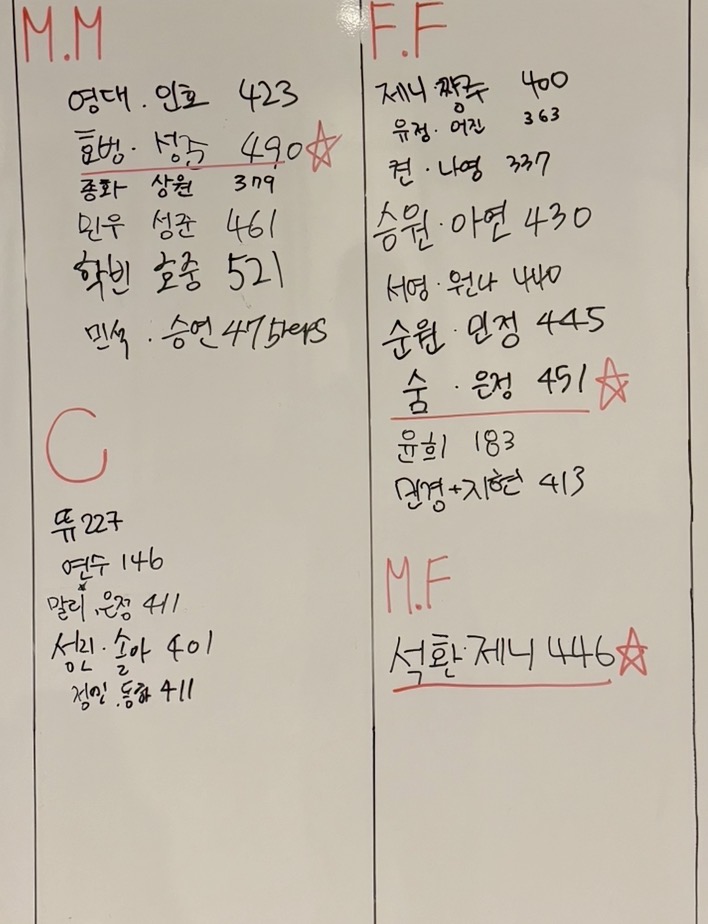 M.M
영대 . 인호 423
효범 . 성주 490
종화 상원 379
민우 성준 461
학빈 호중 521
민석 . 승연 475reps
C
뜌 227
연수 146
말리 . 은정 411
성민 . 솔아 401
정민 . 동화 411
F.F
제니 . 짱주 400
유정 . 어진 363
켠 . 나영 337
승원 . 아연 430
서영 . 원나 440
순원 . 민정 445
숨 . 은정 451
윤희 183
민경+지현 413
M.F
석환 . 제니 446